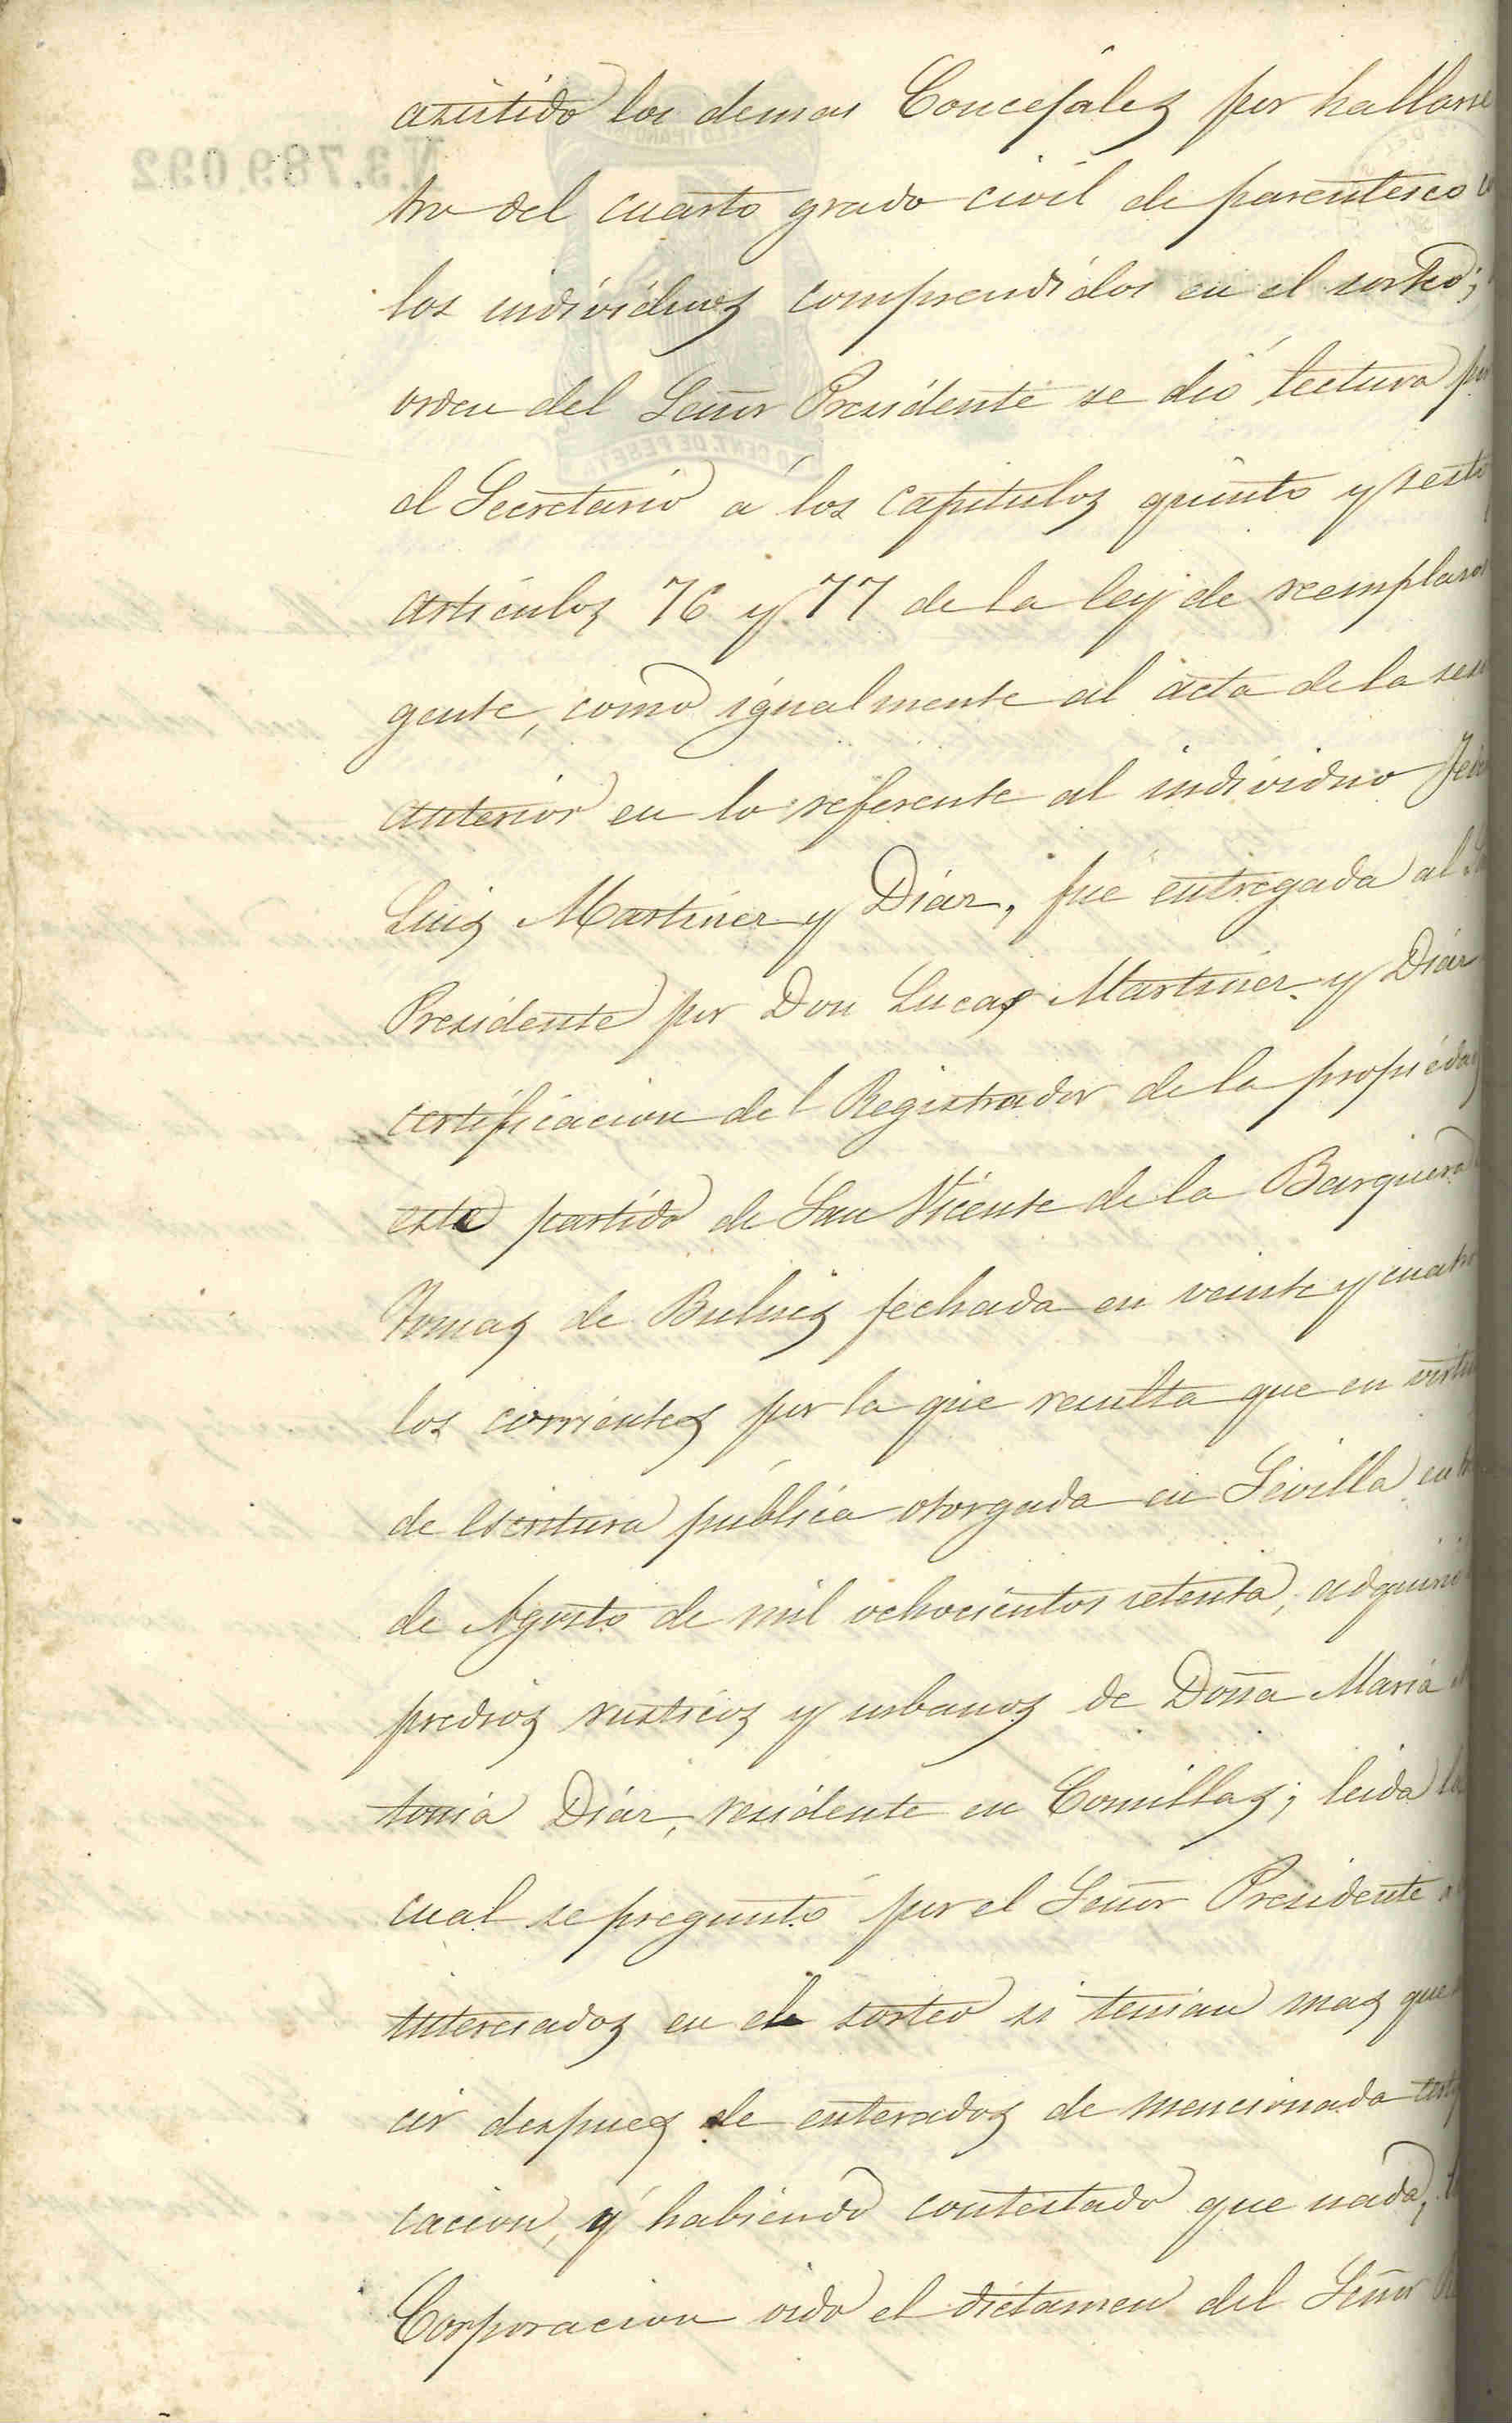 N.3.789.092
asistido los demas Concejales por hallarse
tro del cuarto grado civil de parentesco
los individuos comprendidos en el sorteo;
orden del Señor Presidente se dió lectura por
el Secretario á los capitulos quinto y sesto
articulos 76 y 77 de la ley de reemplazos
gente, como igualmente al acta de la
anterior en lo referente al individuo
Luis Martinez y Diaz, fué entregada al
Presidente por Don Lucas Martinez y Diaz
certificacion del Registrador de la propiedad
este partido de San Vicente de la Barquera
Tomas de Bulnes fechada en veinte y cuatro
los corrientes por la que resulta que en
de escritura pública otorgada en Sevilla en
de Agosto de mil ochocientos setenta, adquirió
predios rusticos y urbanos de Doña Maria
tonia Diaz, residente en Comillas; leida la
cual se preguntó por el Señor Presidente
interesados en el sorteo si tenian mas que
cir despues de enterados de mencionada
cacion, y habiendo contestado que nada,
Corporacion oido el dictamen del Señor